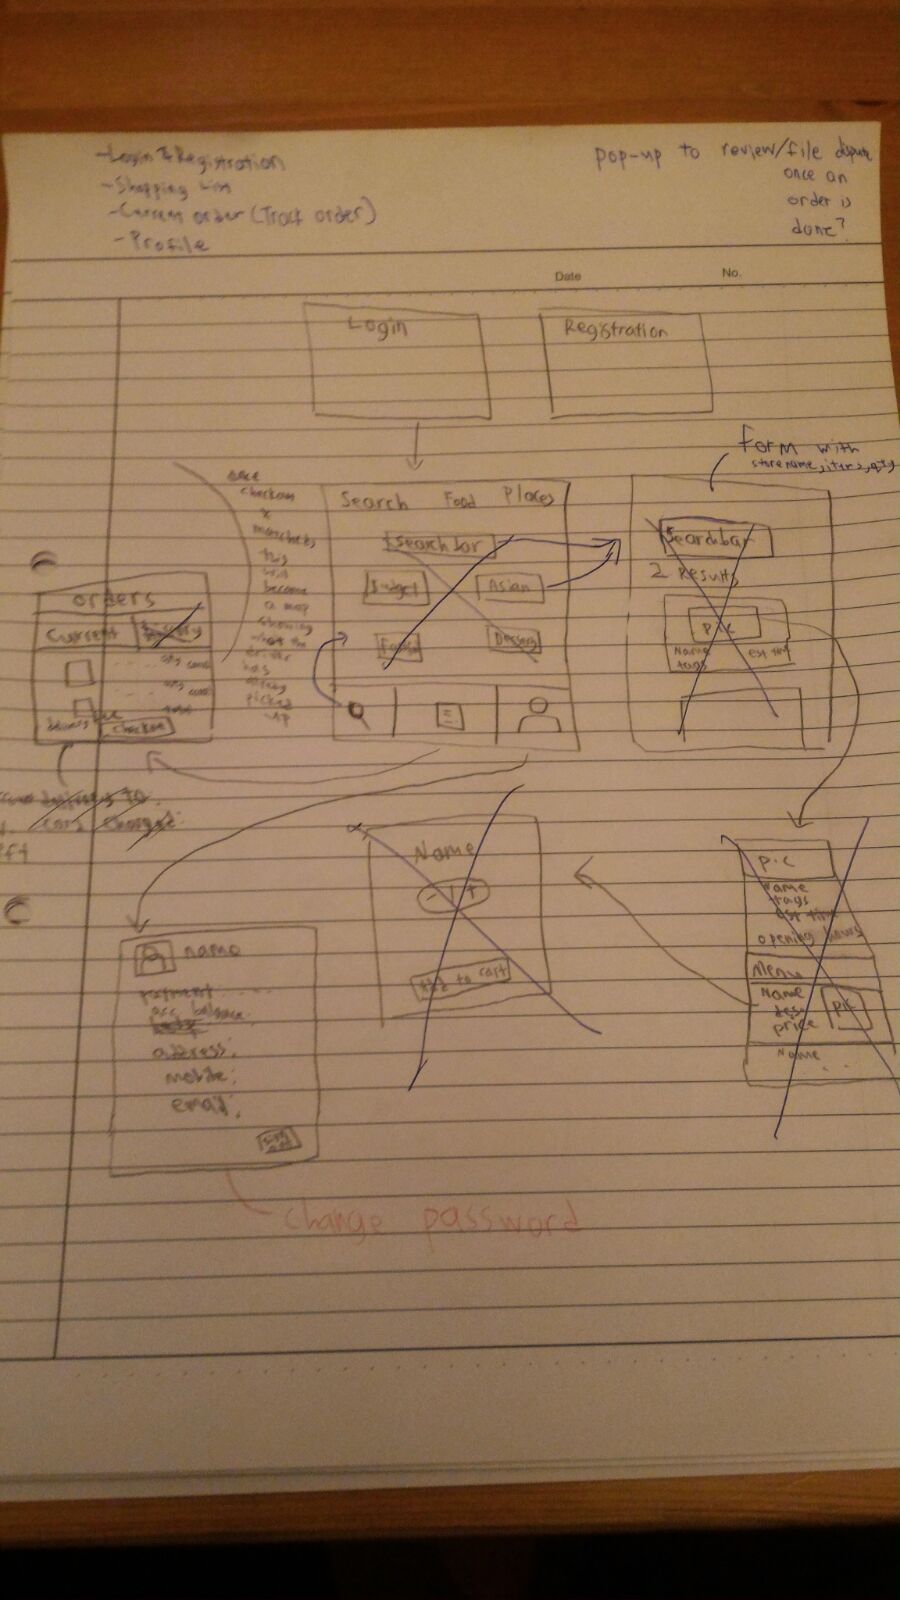 - Login & Registration
- Shopping List
- Current order (Track order)
- Profile
pop-up to review/file dispute
once an
order is
done?
Date
No.
Login
Registration
Form with
store name, items, qty
once
checkout
&
matches
this
will
become
a map
showing
what the
driver
has
already
picked
up
Search Food Places
Searchbar
Budget
Asian
Dessert
Searchbar
2 Results
pic
Name
tags
est time
orders
Current
History
qty
qty
total
delivery fee
checkout
Name
- 1 +
Add to cart
pic
Name
tags
est time
opening hours
Menu
Name
desc
price
pic
Name
...
name
Payment
acc balance
address:
mobile:
email:
change password